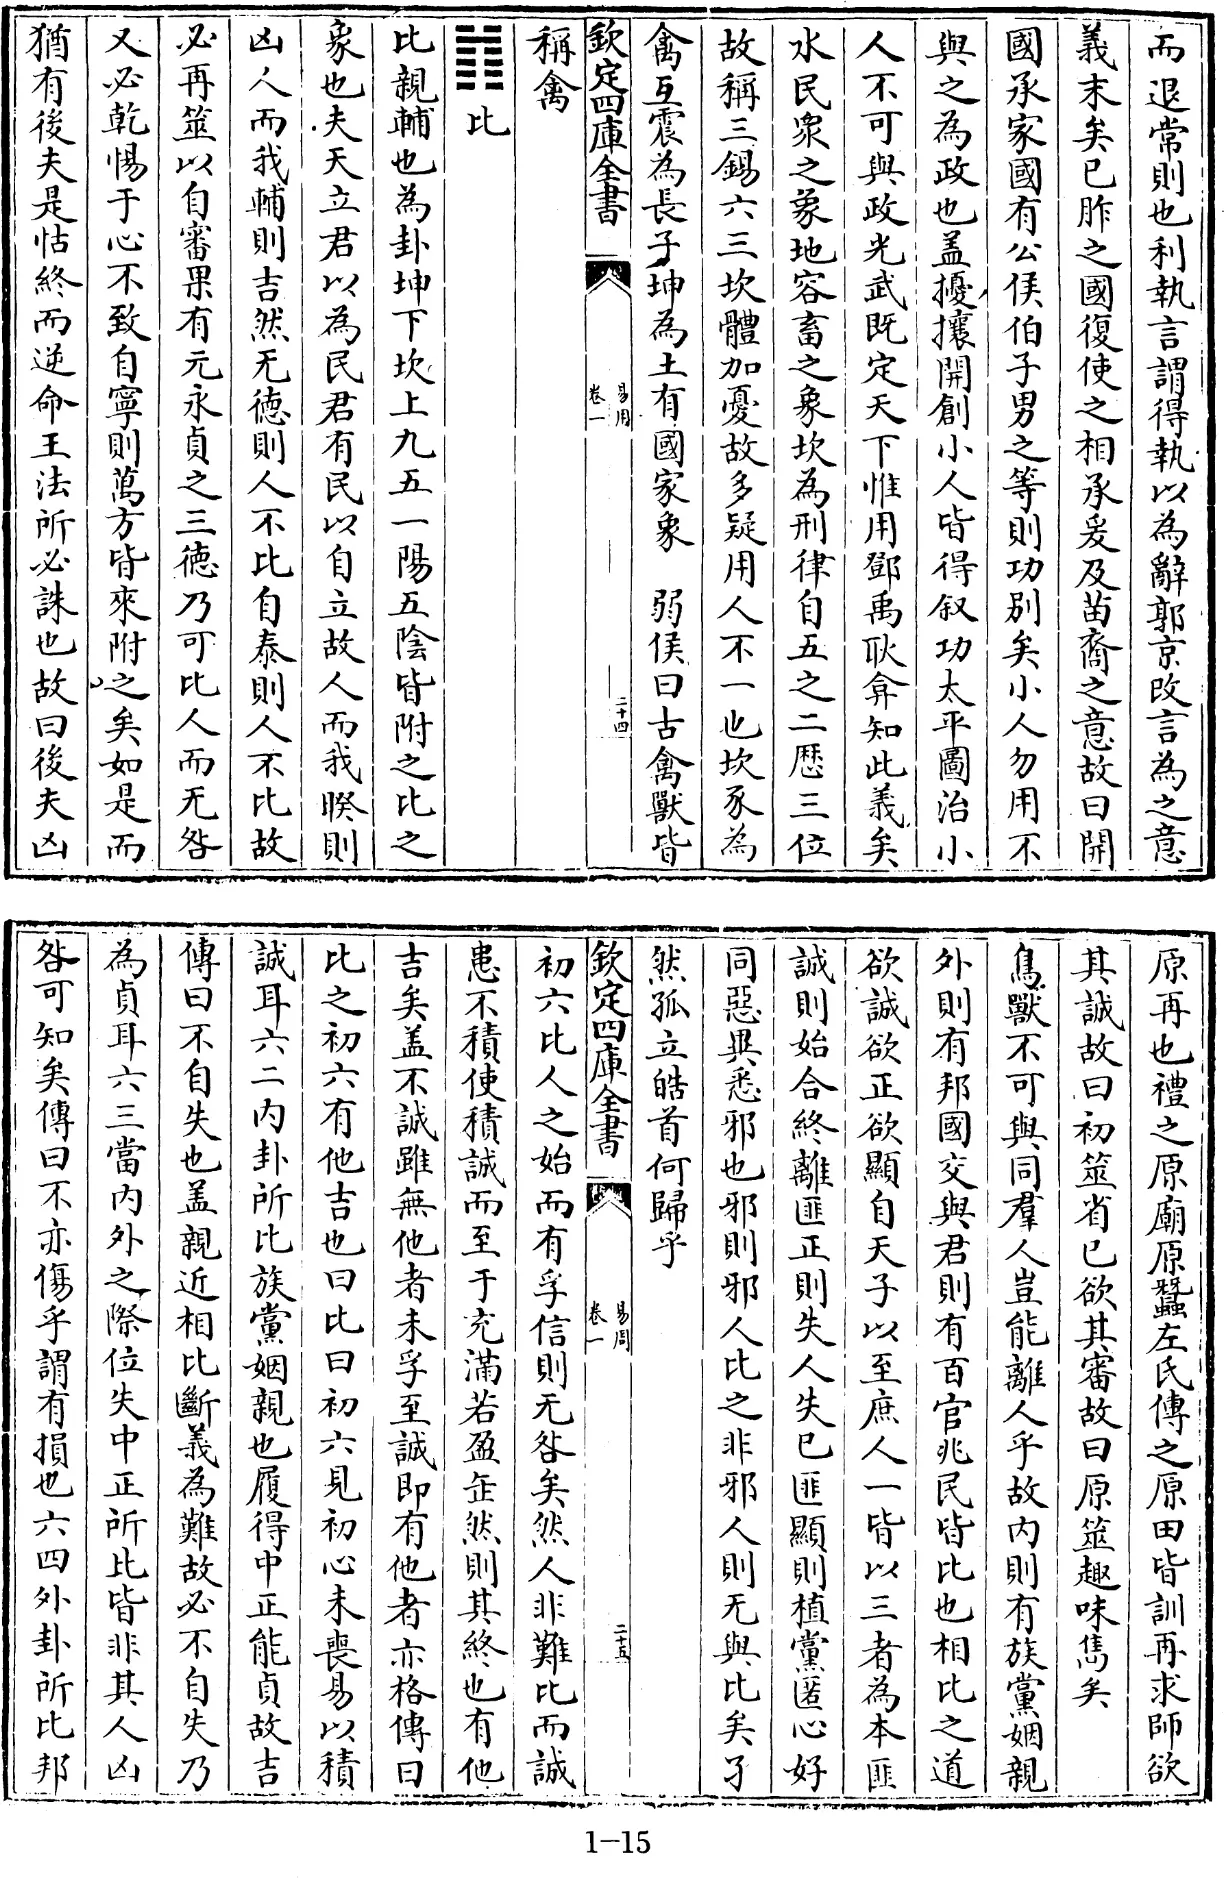 而退常則也利執言謂得執以為辭郭京改言為之意
義末矣已胙之國復使之相承爰及苗裔之意故曰開
國承家國有公侯伯子男之等則功別矣小人勿用不
與之為政也盖擾攘開創小人皆得叙功太平圖治小
人不可與政光武既定天下惟用鄧禹耿弇知此義矣
水民衆之象地容畜之象坎為刑律自五之二歷三位
故稱三錫六三坎體加憂故多疑用人不一也坎豕為
禽互震為長子坤為土有國家象 弱侯曰古禽獸皆
欽定四庫全書 易周 卷一 二十四
稱禽
䷇比
比親輔也為卦坤下坎上九五一陽五陰皆附之比之
象也夫天立君以為民君有民以自立故人而我暌則
凶人而我輔則吉然无德則人不比自泰則人不比故
必再筮以自審果有元永貞之三德乃可比人而无咎
又必乾惕于心不致自寧則萬方皆來附之矣如是而
猶有後夫是怙終而逆命王法所必誅也故曰後夫凶
原再也禮之原廟原蠶左氏傳之原田皆訓再求師欲
其誠故曰初筮省已欲其審故曰原筮趣味雋矣
鳥獸不可與同羣人豈能離人乎故内則有族黨姻親
外則有邦國交與君則有百官兆民皆比也相比之道
欲誠欲正欲顯自天子以至庶人一皆以三者為本匪
誠則始合終離匪正則失人失已匪顯則植黨匿心好
同惡異悉邪也邪則邪人比之非邪人則无與比矣孑
然孤立皓首何歸乎
欽定四庫全書 易周 卷一 二十五
初六比人之始而有孚信則无咎矣然人非難比而誠
患不積使積誠而至于充滿若盈缶然則其終也有他
吉矣盖不誠雖無他者未孚至誠即有他者亦格傳曰
比之初六有他吉也曰比曰初六見初心未喪易以積
誠耳六二内卦所比族黨姻親也履得中正能貞故吉
傳曰不自失也盖親近相比斷義為難故必不自失乃
為貞耳六三當内外之際位失中正所比皆非其人凶
咎可知矣傳曰不亦傷乎謂有損也六四外卦所比邦
1-15